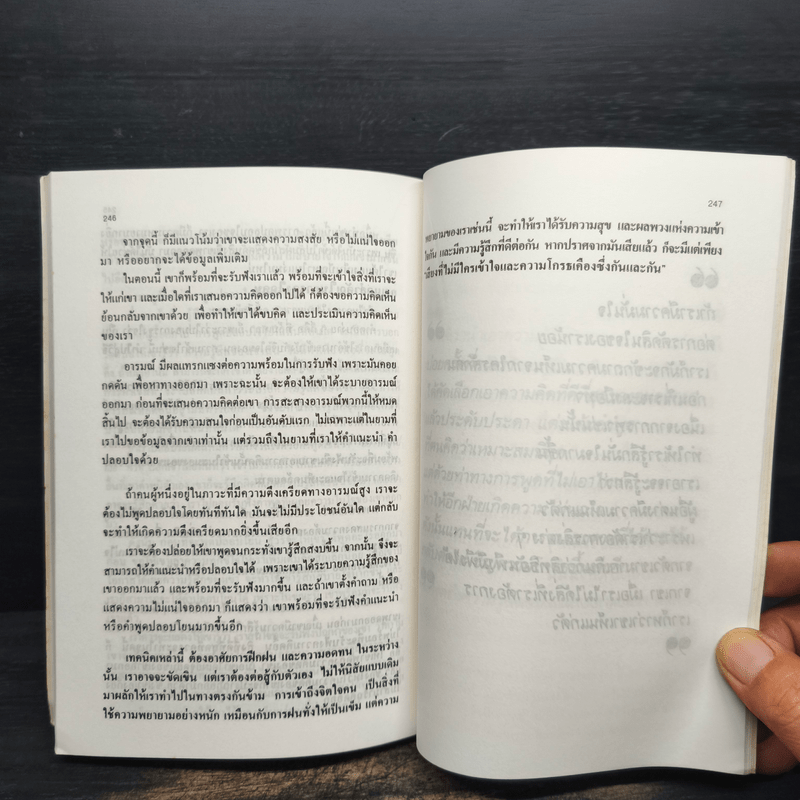 246
จากจุดนี้ ก็มีแนวโน้มว่าเขาจะแสดงความสงสัย หรือไม่แน่ใจออก
มา หรืออยากจะได้ข้อมูลเพิ่มเติม
ในตอนนี้ เขาก็พร้อมที่จะรับฟังเราแล้ว พร้อมที่จะเข้าใจสิ่งที่เราจะ
ให้แก่เขา และเมื่อใดที่เราเสนอความคิดออกไปได้ ก็ต้องขอความคิดเห็น
ย้อนกลับจากเขาด้วย เพื่อทำให้เขาได้ขบคิด และประเมินความคิดเห็น
ของเรา
อารมณ์ มีผลแทรกแซงต่อความพร้อมในการรับฟัง เพราะมันคอย
กดดัน เพื่อหาทางออกมา เพราะฉะนั้น จะต้องให้เขาได้ระบายอารมณ์
ออกมา ก่อนที่จะเสนอความคิดต่อเขา การสะสางอารมณ์พวกนี้ให้หมด
สิ้นไป จะต้องได้รับความสนใจก่อนเป็นอันดับแรก ไม่เฉพาะแต่ในยามที่
เราไปขอข้อมูลจากเขาเท่านั้น แต่รวมถึงในยามที่เราให้คำแนะนำ คำ
ปลอบใจด้วย
ถ้าคนผู้หนึ่งอยู่ในภาวะที่มีความตึงเครียดทางอารมณ์สูง เราจะ
ต้องไม่พูดปลอบใจโดยทันทีทันใด มันจะไม่มีประโยชน์อันใด แต่กลับ
จะทำให้เกิดความตึงเครียดมากยิ่งขึ้นเสียอีก
เราจะต้องปล่อยให้เขาพูดจนกระทั่งเขารู้สึกสงบขึ้น จากนั้น จึงจะ
สามารถให้คำแนะนำหรือปลอบใจได้ เพราะเขาได้ระบายความรู้สึกของ
เขาออกมาแล้ว และพร้อมที่จะรับฟังมากขึ้น และถ้าเขาตั้งคำถาม หรือ
แสดงความไม่แน่ใจออกมา ก็แสดงว่า เขาพร้อมที่จะรับฟังคำแนะนำ
หรือคำพูดปลอบโยนมากขึ้นอีก
เทคนิคเหล่านี้ ต้องอาศัยการฝึกฝน และความอดทน ในระหว่าง
นั้น เราอาจจะขัดเขิน แต่เราต้องต่อสู้กับตัวเอง ไม่ให้นิสัยแบบเดิม
มาผลักให้เราทำไปในทางตรงกันข้าม การเข้าถึงจิตใจคน เป็นสิ่งที่
ใช้ความพยายามอย่างหนัก เหมือนกับการฝนทั่งให้เป็นเข็ม แต่ความ
247
พยายามของเราเช่นนี้ จะทำให้เราได้รับความสุข และผลพวงแห่งความเข้า
ใจกัน และมีความรู้สึกที่ดีต่อกัน หากปราศจากมันเสียแล้ว ก็จะมีแต่เพียง
"เสียงที่ไม่มีใครเข้าใจและความโกรธเคืองซึ่งกันและกัน"